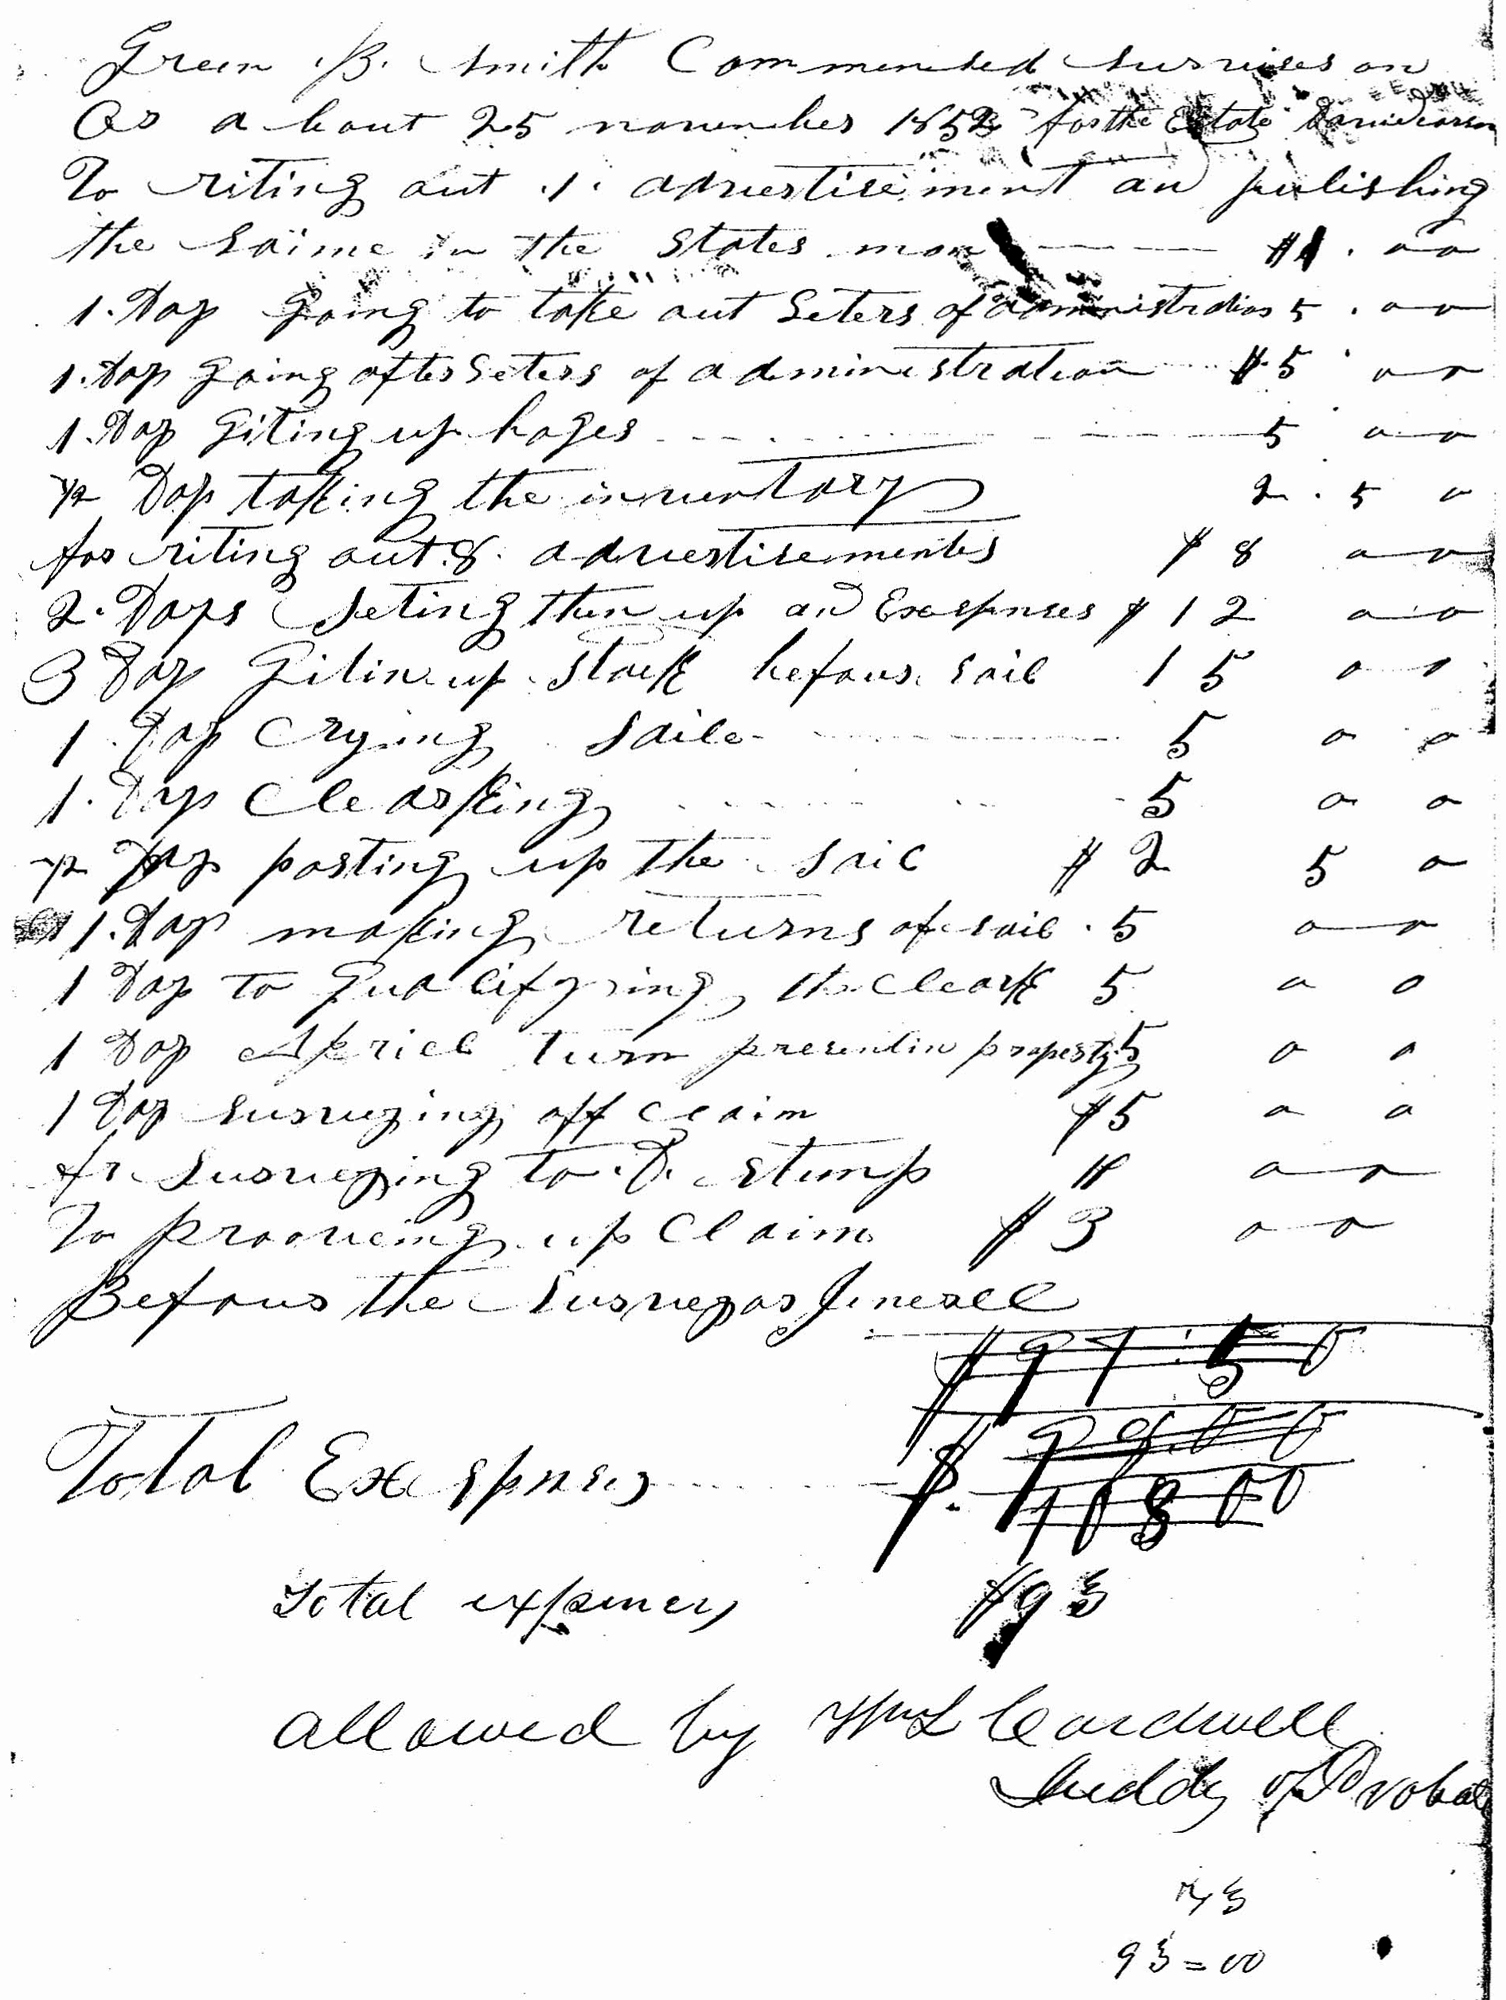 Green B. Smith Commensed survises on
Or a bout 25 november 1852 for the Estate
To riting out .1. advertisement an pulishing
the saime in the States man $1.00
1. Day going to take out Leters of administration 5.00
1. Day going after Leters of administration $5 00
1. Day Giting up hoges 5 00
1/2 Day taking the inventory 2.50
for riting out .8. advertisements $8 00
2. Days Seting them up and Exespenses $12 00
3 Day Gitin up stock before sail 15 00
1 Day Crying saile 5 00
1. Day Clearking 5 00
1/2 Day posting up the sail $2 50
1. Day making returns of sail . 5 00
1 Day to Qualifying the Cleark 5 00
1 Day Apriel turm presentin property 5 00
1 Day surveying off claim $5 00
for surveying to D. Stump 00
To prooveing up Claim $3 00
Before the Surveyor Jineral
$97.50
99.00
Total Exespenses $. 108 00
Total expences $93
allowed by Wm L Cardwell
Judg of Probate
93=00